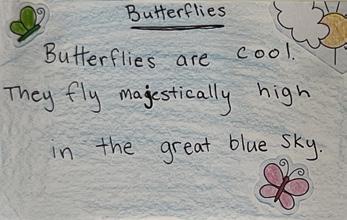 Butterflies
Butterflies are cool.
They fly majestically high
in the great blue sky.